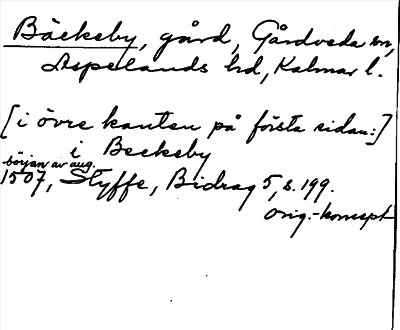 Bäckeby, gård, Gårdveda sn,
Aspelands hd, Kalmar l.
[i övre kanten på första sidan:]
i Beckeby
början av aug.
1507, Styffe, Bidrag 5, s. 199.
orig.-koncept